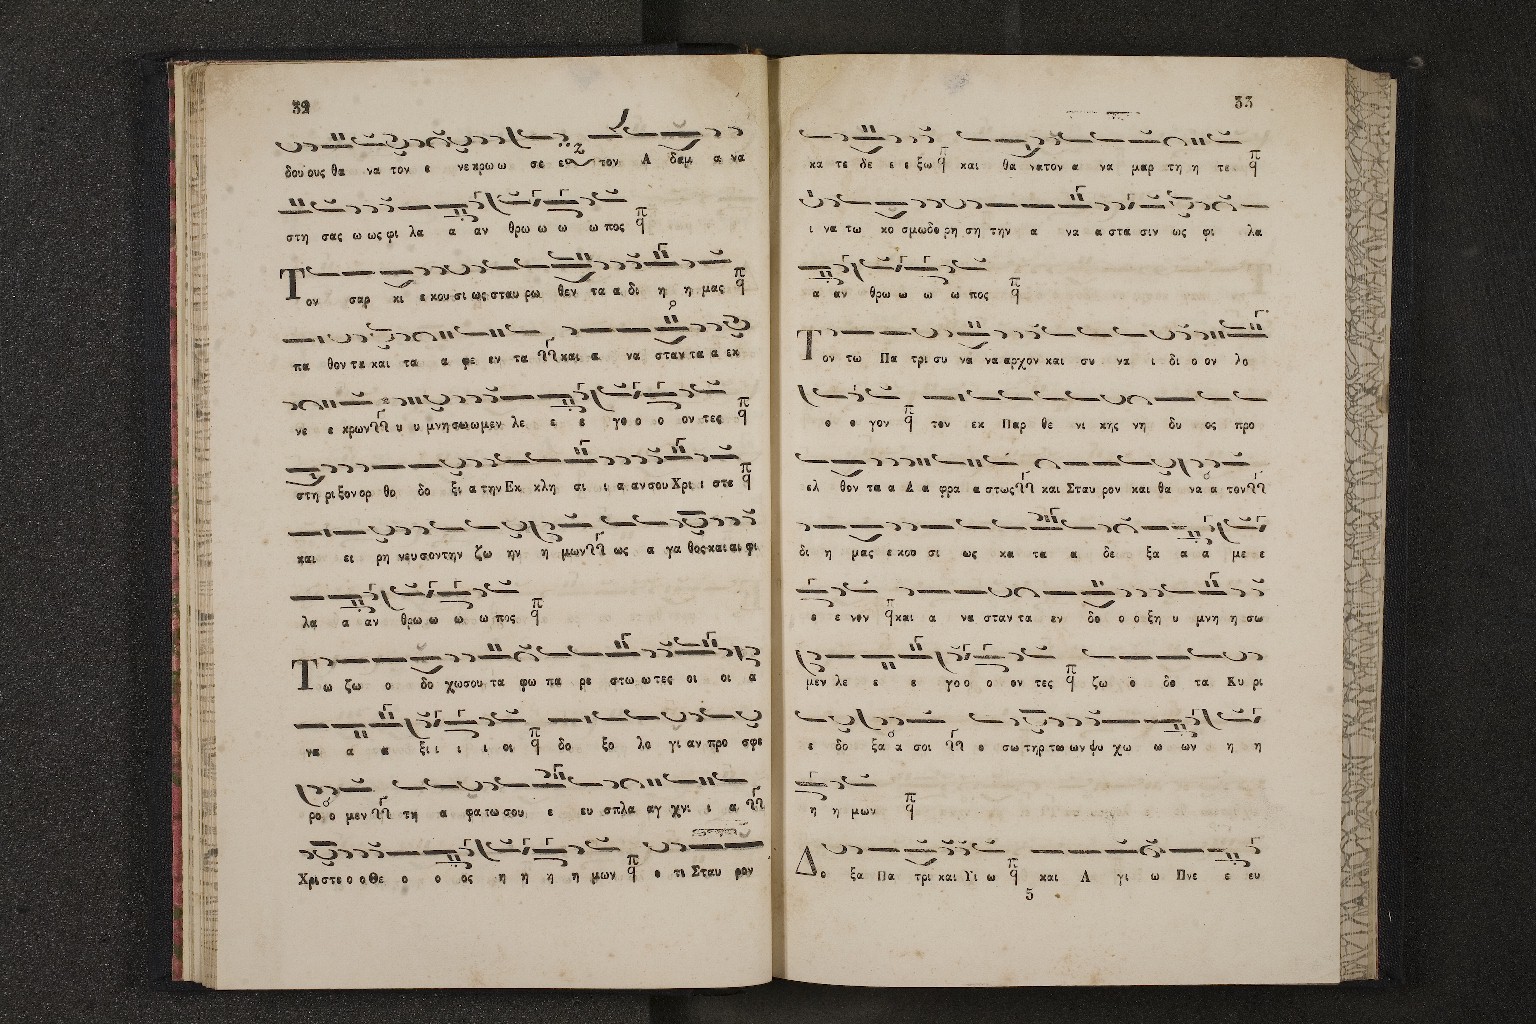 32
δου ους θα να τον ε νε κρω ω σε ε τον Α δαμ α να
στη σας ω ως φι λα α αν θρω ω ω ω πος
Τον σαρ κι ε κου σι ως σταυ ρω θεν τα α δι η η μας
πα θον τα και τα α φε εν τα και α να σταν τα α εκ
νε ε κρων υ υ μνη σω ω μεν λε ε ε γο ο ο ον τες
στη ρι ξον ορ θο δο ξι α την Εκ κλη σι ι α αν σου Χρι ι στε
και ει ρη νευ σον την ζω ην η μων ως α γα θος και αι φι
λα α αν θρω ω ω ω πος
Τω ζω ο δο χω σου τα φω πα ρε στω ω τες οι οι α
να α α ξι ι ι ι οι δο ξο λο γι αν προ σφε
ρο ο μεν τη α φα τω σου ε ευ σπλα αγ χνι ι α
Χρι στε ο ο Θε ο ο ος η η η η μων ο τι Σταυ ρον
33
κα τε δε ε ε ξω και θα νατον α να μαρ τη η τε
ι να τω κο σμω δω ρη ση την α να α στα σιν ως φι λα
α αν θρω ω ω ω πος
Τον τω Πα τρι συ να να αρχον και συ να ι δι ο ον λο
ο ο γον τον εκ Παρ θε νι κης νη δυ ος προ
ελ θον τα α Α α φρα α στως και Σταυ ρον και θα να α τον
δι η μας ε κου σι ως κα τα α δε ξα α α με ε
ο ε νον και α να σταν τα εν δο ο ο ξη υ μνη η σω
μεν λε ε ε γο ο ο ον τες ζω ο δο τα Κυ ρι
ε δο ξα α σοι ο σω τηρ τω ων ψυ χω ω ων η η
η η μων
Δο ξα Πα τρι και Υι ω και Α γι ω Πνε ε ευ
5